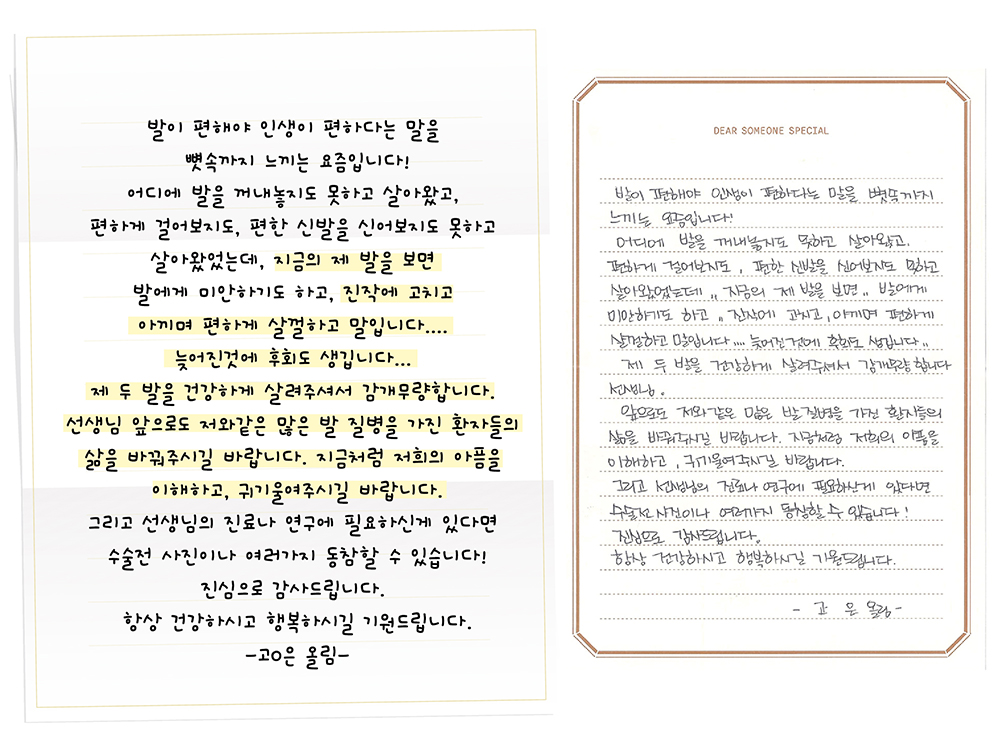 발이 편해야 인생이 편하다는 말을
뼛속까지 느끼는 요즘입니다!
어디에 발을 꺼내놓지도 못하고 살아왔고,
편하게 걸어보지도, 편한 신발을 신어보지도 못하고
살아왔었는데, 지금의 제 발을 보면
발에게 미안하기도 하고, 진작에 고치고
아끼며 편하게 살껄하고 말입니다....
늦어진것에 후회도 생깁니다...
제 두 발을 건강하게 살려주셔서 감개무량합니다.
선생님 앞으로도 저와같은 많은 발 질병을 가진 환자들의
삶을 바꿔주시길 바랍니다. 지금처럼 저희의 아픔을
이해하고, 귀기울여주시길 바랍니다.
그리고 선생님의 진료나 연구에 필요하신게 있다면
수술전 사진이나 여러가지 동참할 수 있습니다!
진심으로 감사드립니다.
항상 건강하시고 행복하시길 기원드립니다.
-고O은 올림-
DEAR SOMEONE SPECIAL
발이 편해야 인생이 편하다는 말을 뼛속까지
느끼는 요즘입니다!
어디에 발을 꺼내놓지도 못하고 살아왔고.
편하게 걸어보지도, 편한 신발을 신어보지도 못하고
살아왔었는데,, 지금의 제 발을 보면,, 발에게
미안하기도 하고,, 진작에 고치고, 아끼며 편하게
살껄하고 말입니다.... 늦어진것에 후회도 생깁니다,,
제 두 발을 건강하게 살려주셔서 감개무량합니다
선생님.
앞으로도 저와같은 많은 발 질병을 가진 환자들의
삶을 바꿔주시길 바랍니다. 지금처럼 저희의 아픔을
이해하고, 귀기울여주시길 바랍니다.
그리고 선생님의 진료나 연구에 필요하신게 있다면
수술전 사진이나 여러가지 동참할 수 있습니다!
진심으로 감사드립니다.
항상 건강하시고 행복하시길 기원드립니다.
- 고 은 올림-